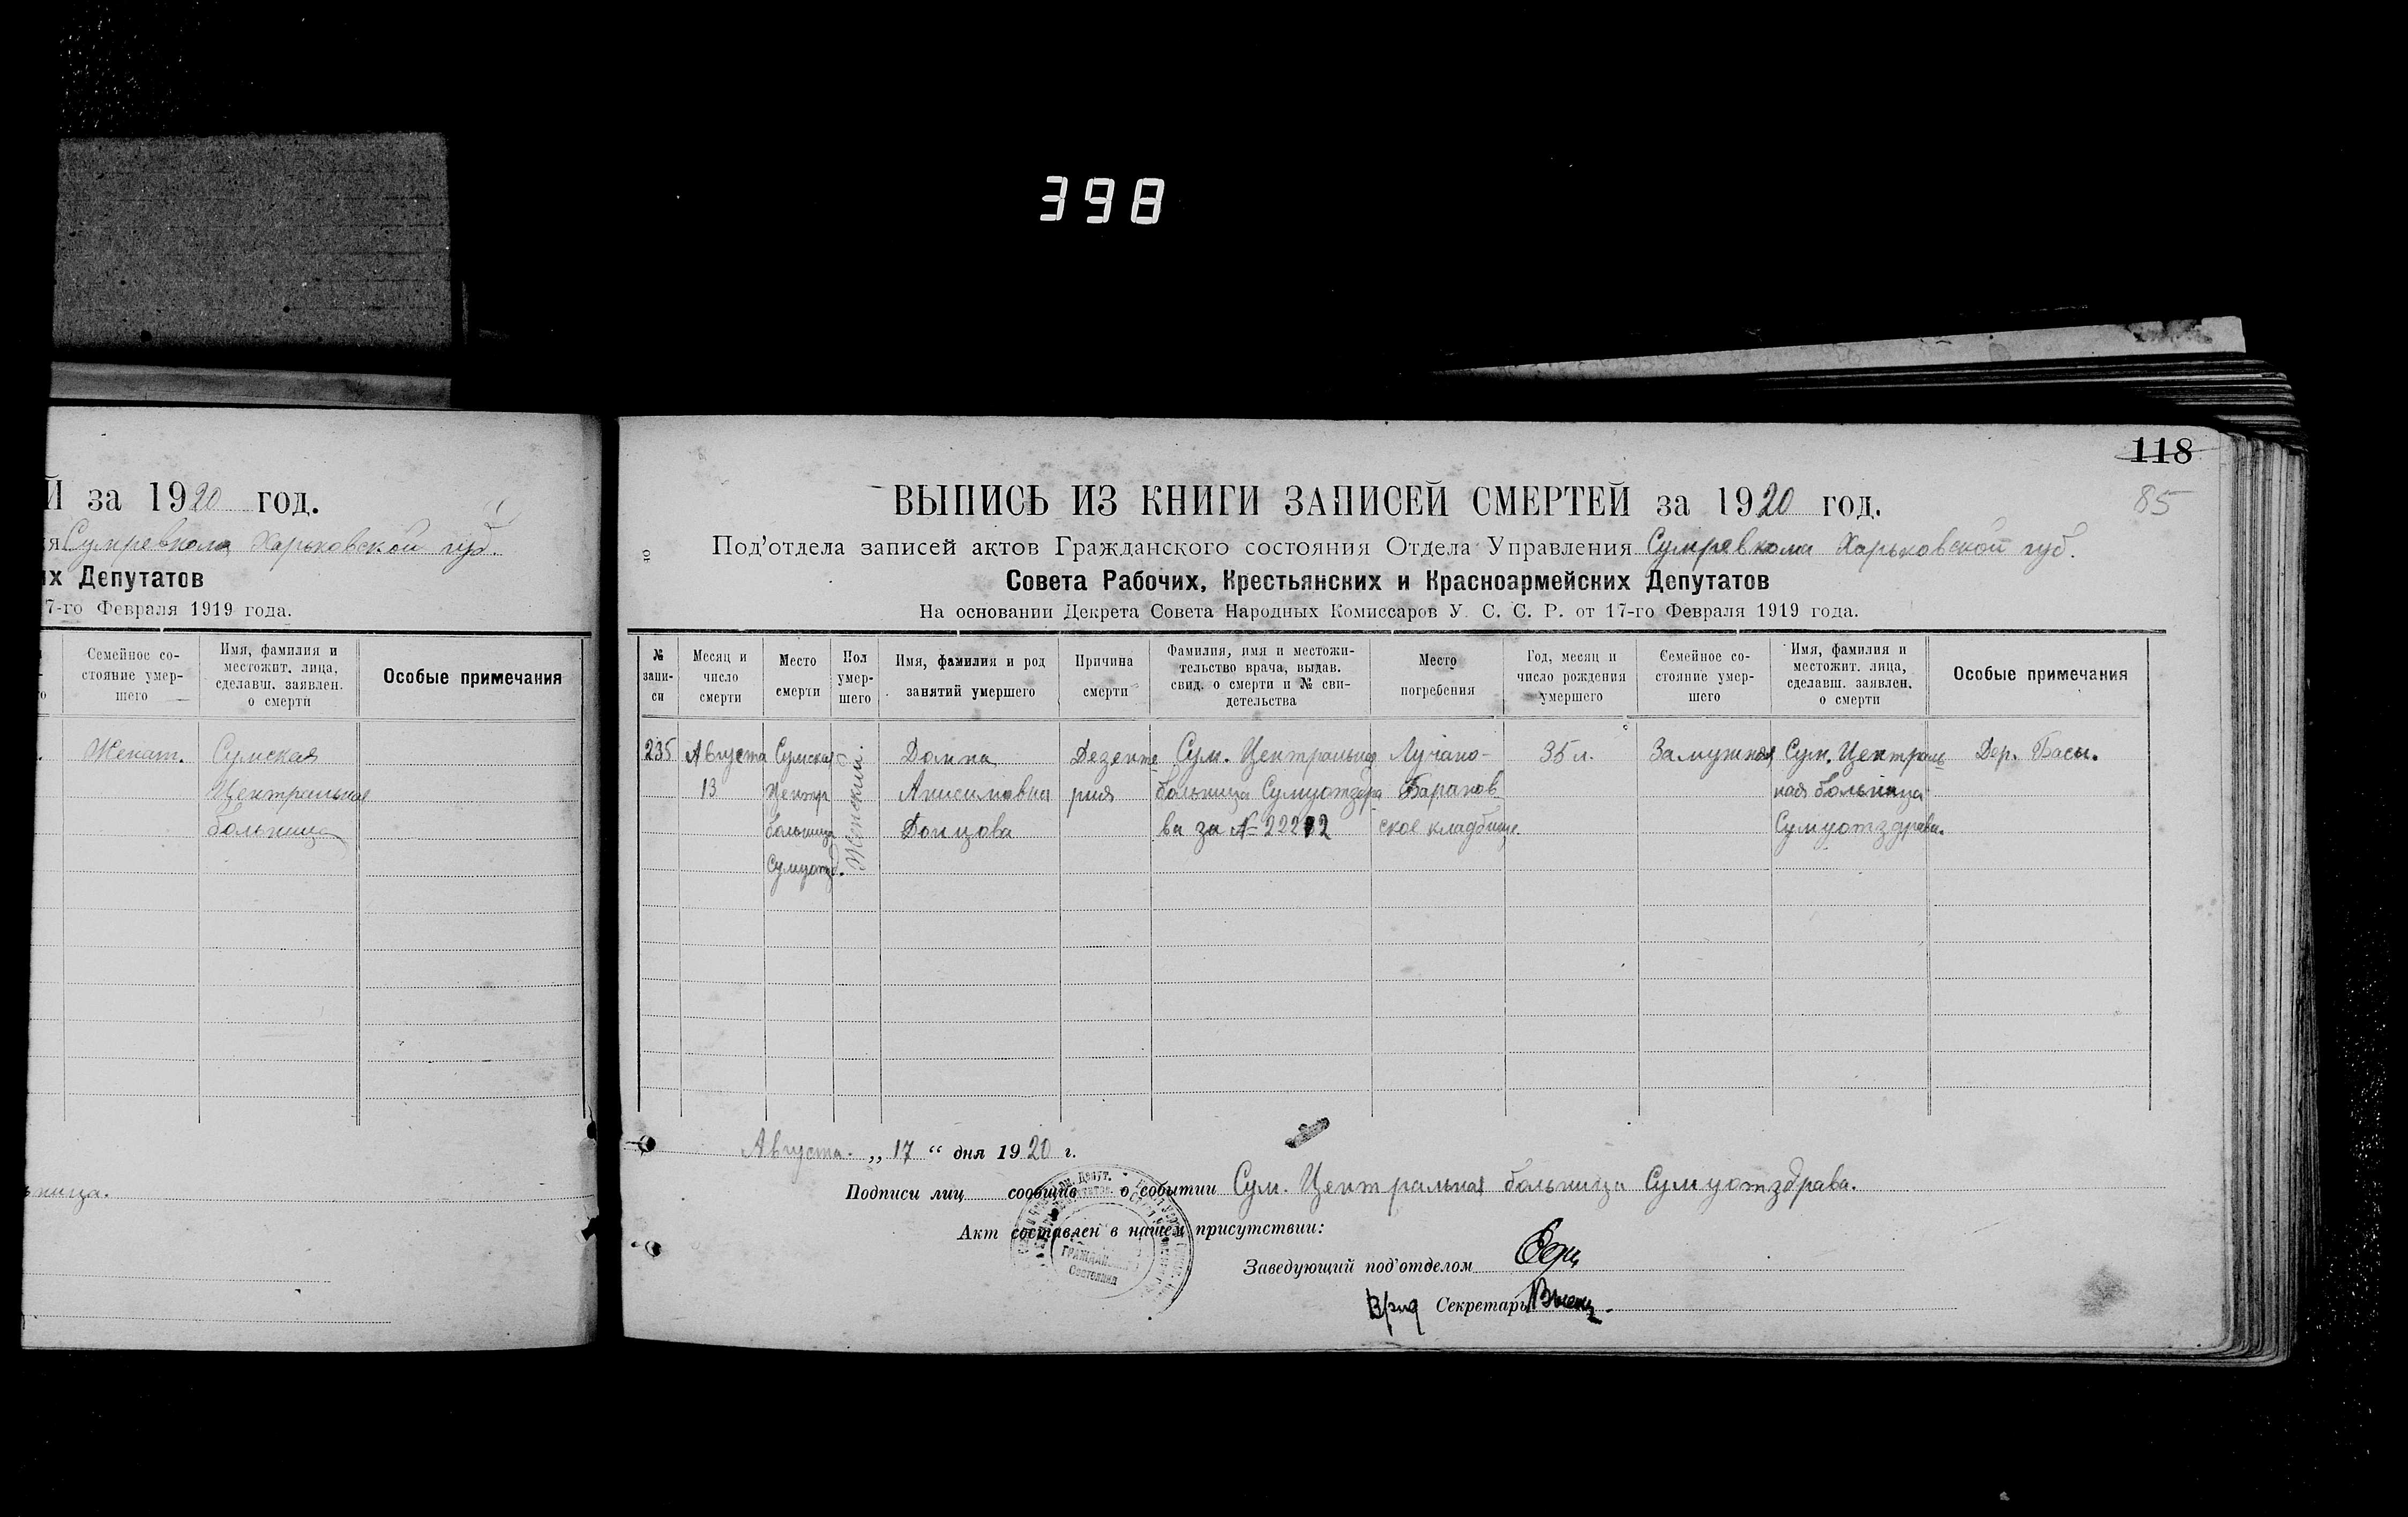 398
Й за 1920 год.
я Сумревкома Харьковской губ.
их Депутатов
7-го Февраля 1919 года.
Семейное со-
стояние умер-
шего
Имя, фамилия и
местожит. лица,
сделавш. заявлен.
о смерти
Особые примечания
Женат.
Сумская
Центральная
больница
ьница.
118
85
ВЫПИСЬ ИЗ КНИГИ ЗАПИСЕЙ СМЕРТЕЙ за 1920 год.
Под'отдела записей актов Гражданского состояния Отдела Управления Сумревкома Харьковской губ.
Совета Рабочих, Крестьянских и Красноармейских Депутатов
На основании Декрета Совета Народных Комиссаров У. С. С. Р. от 17-го Февраля 1919 года.
№
запи-
си
Месяц и
число
смерти
Место
смерти
Пол
умер-
шего
Имя, фамилия и род
занятий умершего
Причина
смерти
Фамилия, имя и местожи-
тельство врача, выдав.
свид. о смерти и № сви-
детельства
Место
погребения
Год, месяц и
число рождения
умершего
Семейное со-
стояние умер-
шего
Имя, фамилия и
местожит. лица,
сделавш. заявлен.
о смерти
Особые примечания
235
Августа
13
Сумская
Центр
больница
Сумуотзд.
Женский.
Домна
Анисимовна
Донцова
Дезенте
рия
Сум. Центральная
больница Сумуотздра
ва за №
Лучано-
Баранов
ское кладбище
35 л.
Замужняя
Сум. Централь
ная больница
Сумуотздрава.
Дер. Басы.
Августа „17“ дня 1920 г.
Подписи лиц сообщив о событии Сум. Центральная больница Сумуотздрава.
Акт составлен в нашем присутствии:
Заведующий под'отделом
Врид Секретарь